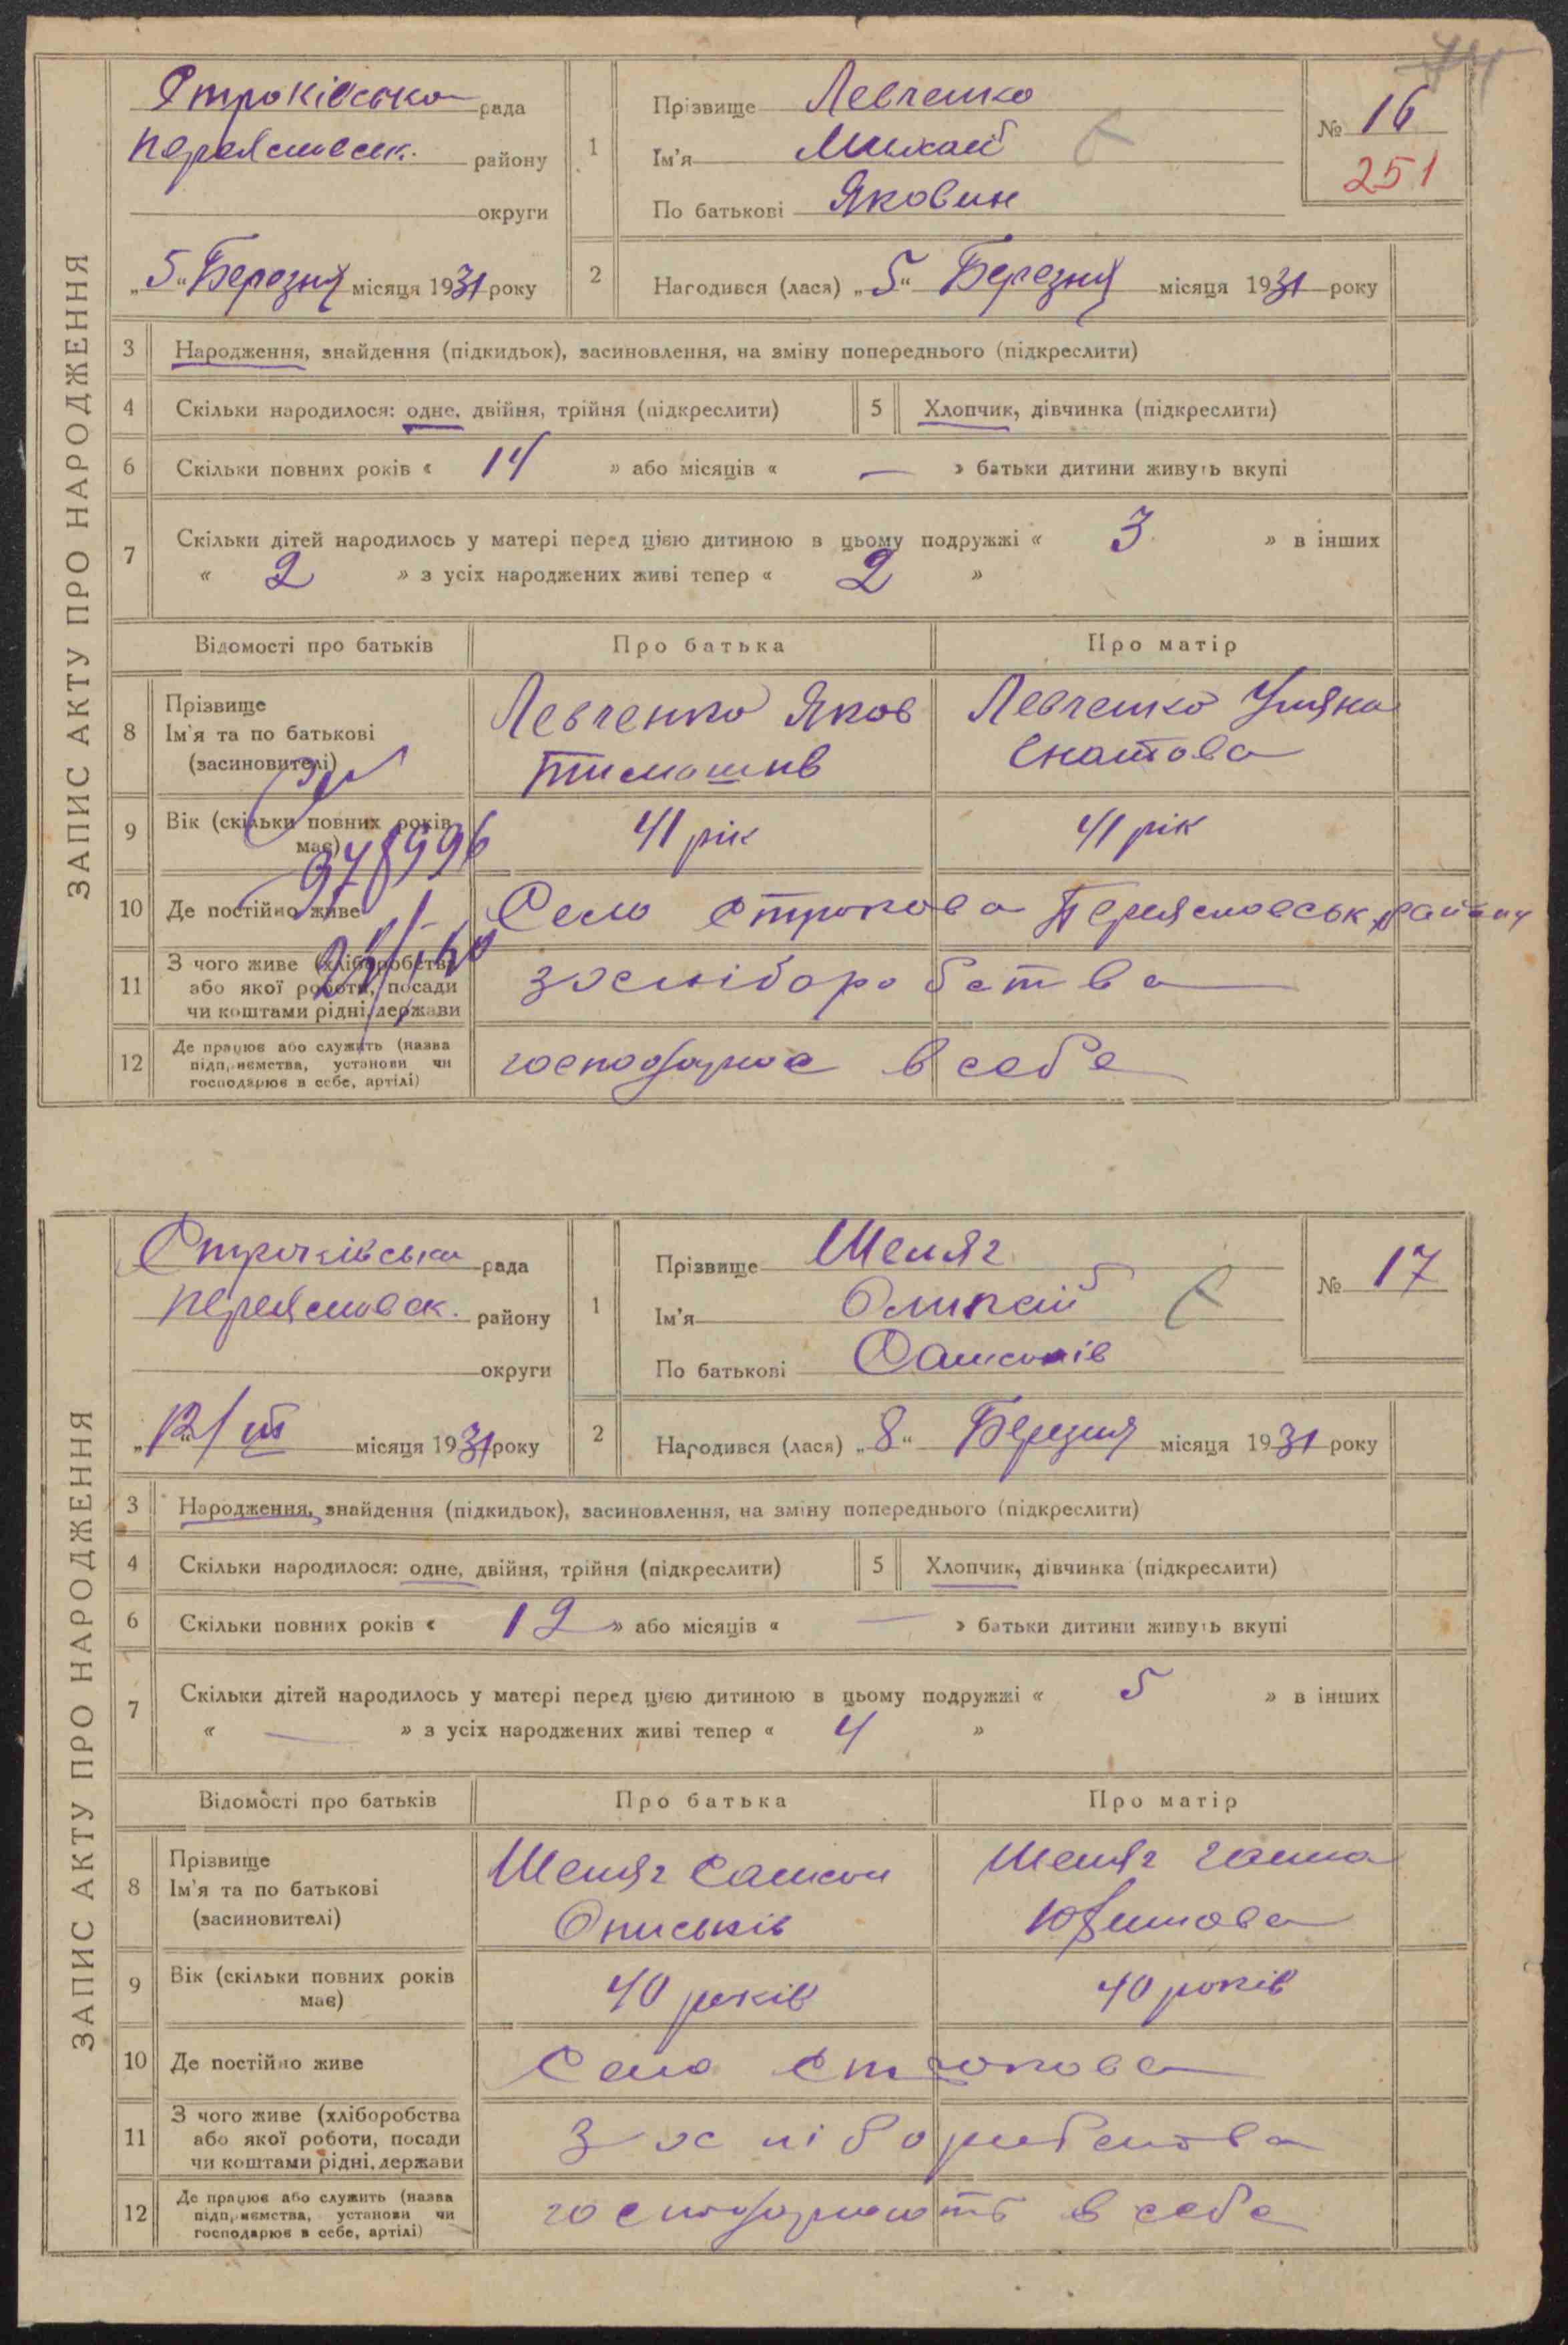 ЗАПИС АКТУ ПРО НАРОДЖЕННЯ
Строківська рада
Переяславськ. району
округи
„5“ Березня місяця 1931 року
1
Прізвище Левченко
Ім'я Михай
По батькові Яковин
№ 16
251
2
Народився (лася) „5“ Березня місяця 1931 року
3 Народження, знайдення (підкидьок), засиновлення, на зміну попереднього (підкреслити)
4 Скільки народилося: одне, двійня, трійня (підкреслити) 5 Хлопчик, дівчинка (підкреслити)
6 Скільки повних років « 14 » або місяців « — » батьки дитини живуть вкупі
7 Скільки дітей народилось у матері перед цією дитиною в цьому подружжі « 3 » в інших
« 2 » з усіх народжених живі тепер « 2 »
Відомості про батьків Про батька Про матір
8 Прізвище
Ім'я та по батькові
(засиновителі)
Левченко Яков
Тимошив
Левченко Уляна
Гнатова
9 Вік (скільки повних років
має)
41 рік 41 рік
10 Де постійно живе Село Строкова Переяславськ району
11 З чого живе (хліборобства
або якої роботи, посади
чи коштами рідні, держави
з хліборобства
12 Де працює або служить (назва
підприємства, установи чи
господарює в себе, артілі)
господарює в себе
ЗАПИС АКТУ ПРО НАРОДЖЕННЯ
Строківська рада
Переяславск. району
округи
„12/III місяця 1931 року
1
Прізвище Шеляг
Ім'я
По батькові Самсонів
№ 17
2
Народився (лася) „8“ Березня місяця 1931 року
3 Народження, знайдення (підкидьок), засиновлення, на зміну попереднього (підкреслити)
4 Скільки народилося: одне, двійня, трійня (підкреслити) 5 Хлопчик, дівчинка (підкреслити)
6 Скільки повних років « 12 » або місяців « — » батьки дитини живуть вкупі
7 Скільки дітей народилось у матері перед цією дитиною в цьому подружжі « 5 » в інших
« — » з усіх народжених живі тепер « 4 »
Відомості про батьків Про батька Про матір
8 Прізвище
Ім'я та по батькові
(засиновителі)
Шеляг Самсон
Описьків
Шеляг Ганна
9 Вік (скільки повних років
має)
40 років 40 років
10 Де постійно живе Село Строкова
11 З чого живе (хліборобства
або якої роботи, посади
чи коштами рідні, держави
З хліборобства
12 Де працює або служить (назва
підприємства, установи чи
господарює в себе, артілі)
господарюють в себе